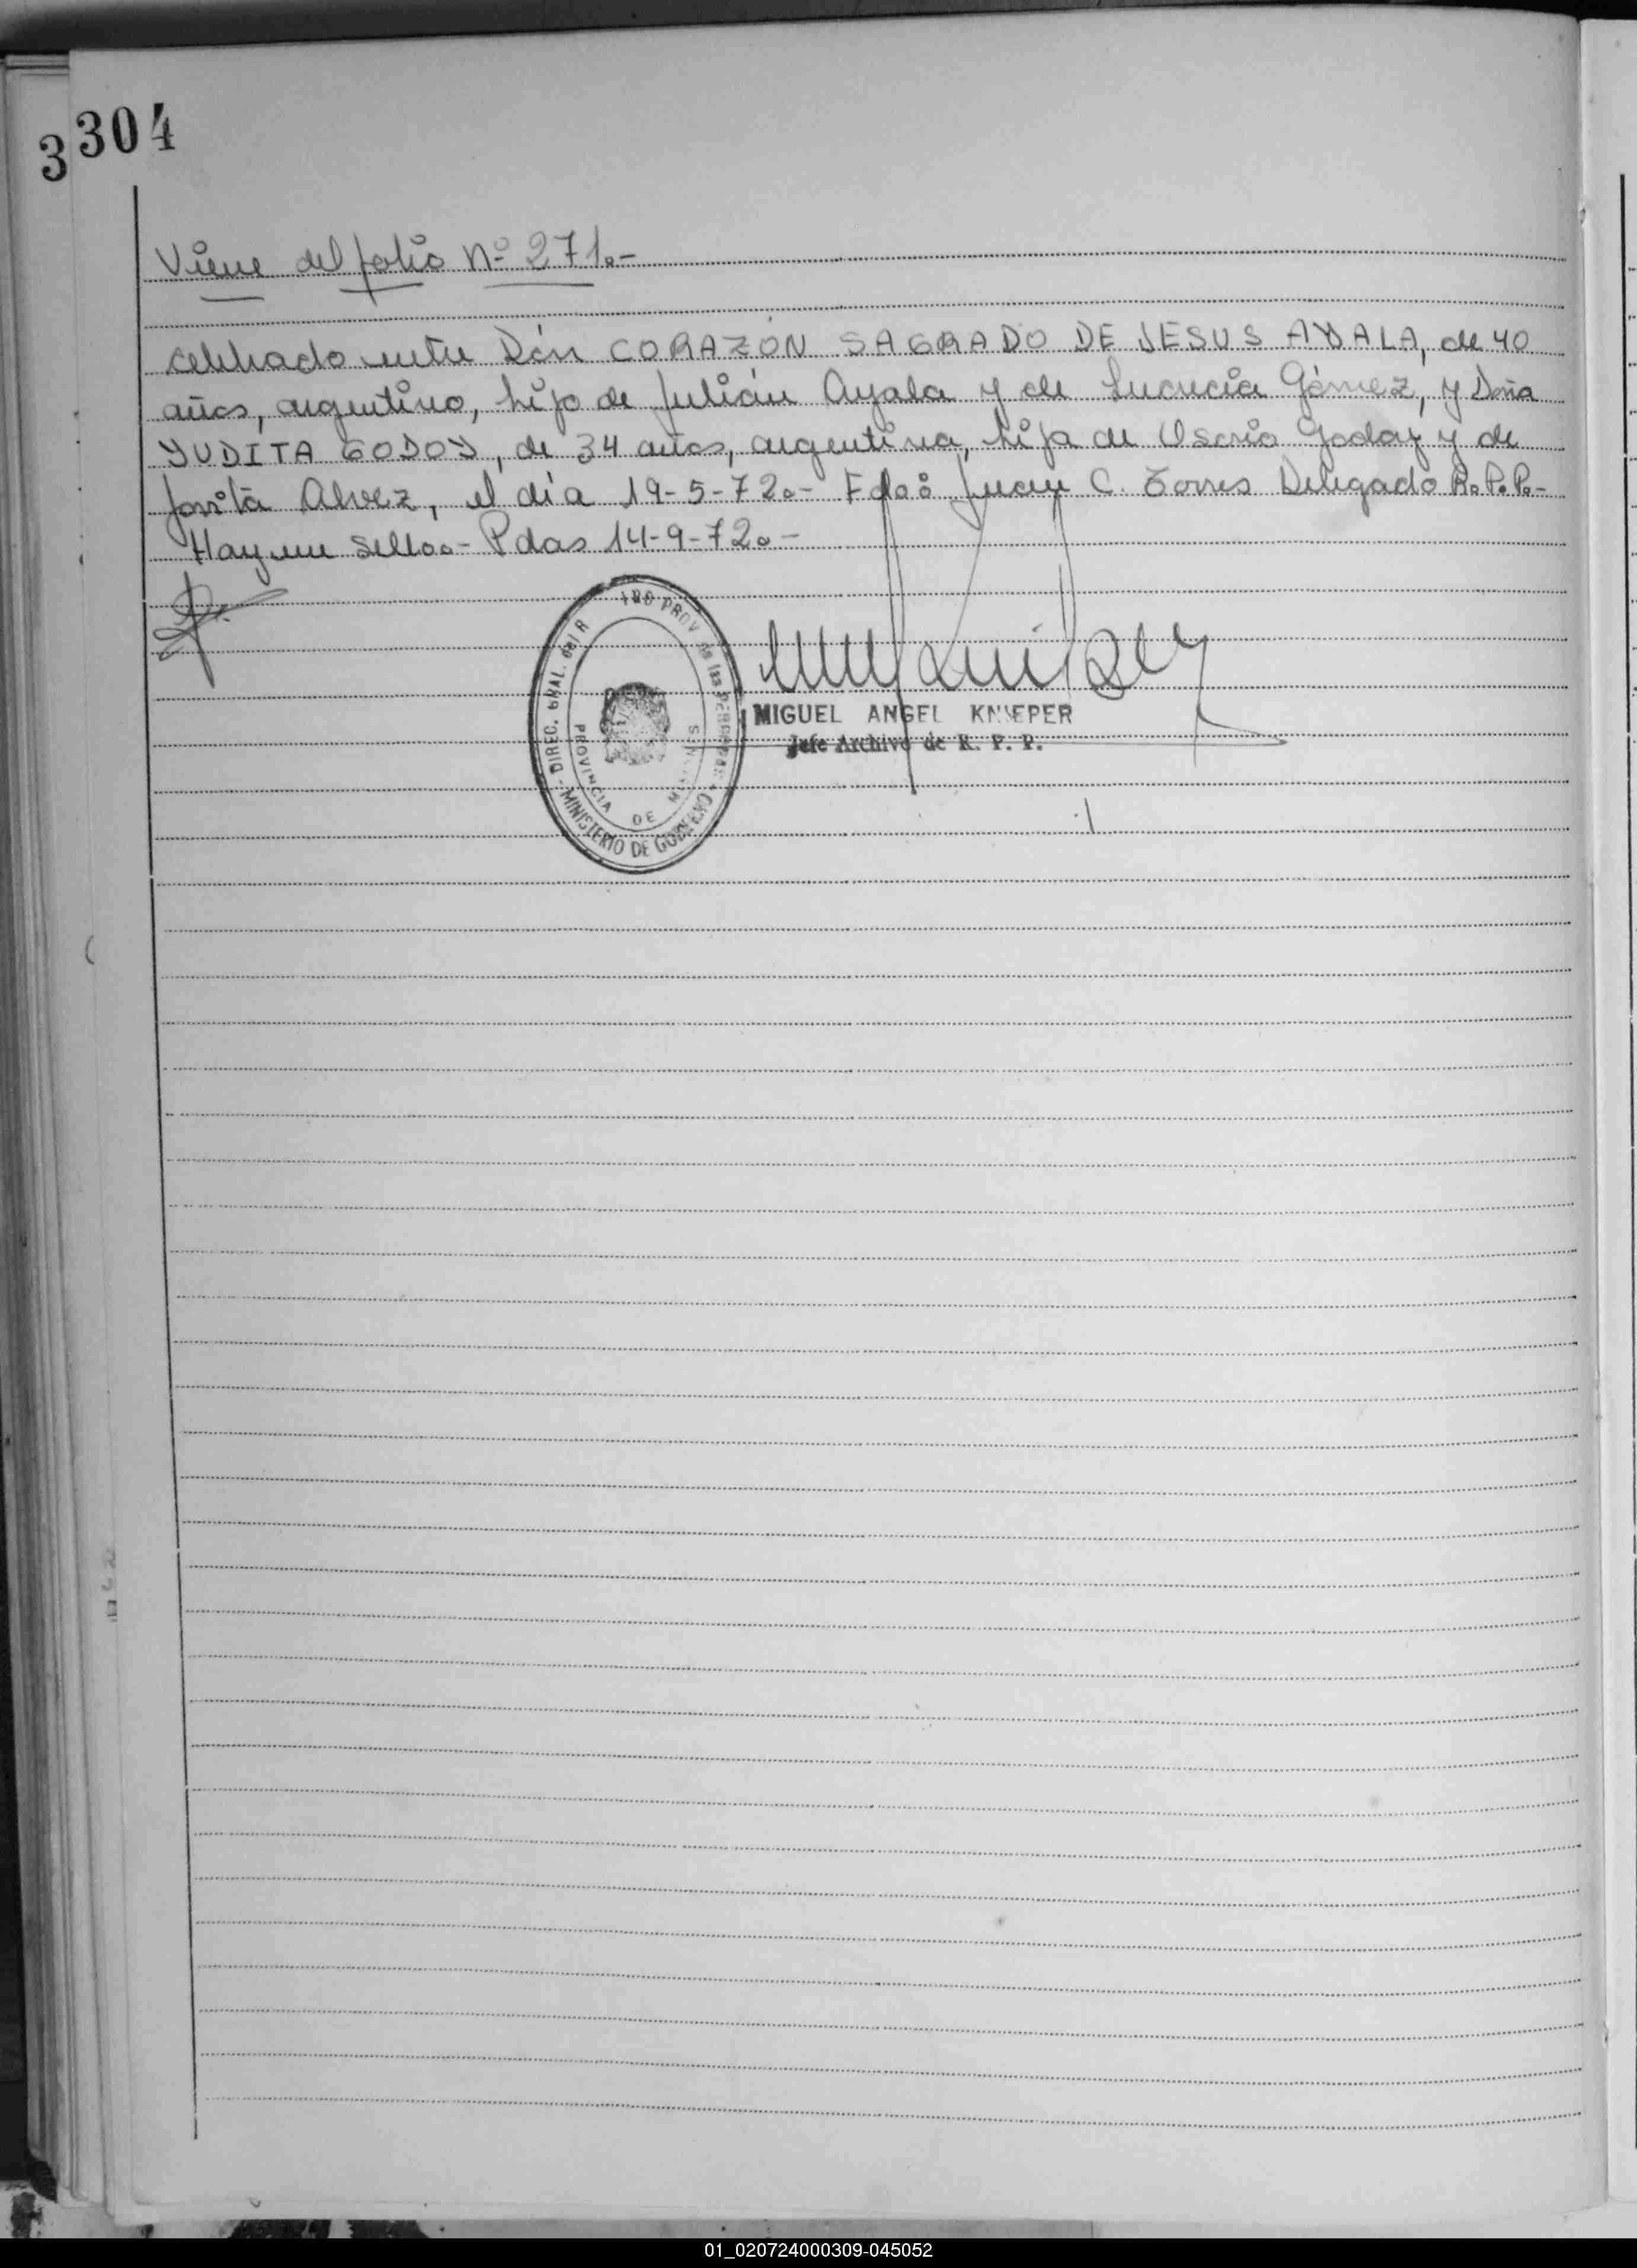 304
3
Viene del folio Nº 271.-
celebrado entre Dón CORAZÓN SAGRADO DE JESUS AYALA, de 40
años, argentino, hijo de Julián Ayala y de Lucrecia Gómez, y Doña
YUDITA GODOY, de 34 años, argentina, hija de Osorio Godoy y de
Alvez, el día 19-5-72.- Fdo: Juan C. Torres Delegado R.P.P.-
Hay un sello.- Pdas 14-9-72.-
DIREC. GRAL. del R PROV de las PERSONAS
MINISTERIO DE GOBIERNO
PROVINCIA DE MISIONES
MIGUEL ANGEL KNIEPER
Jefe Archivo de R. P. P.
01_020724000309-045052